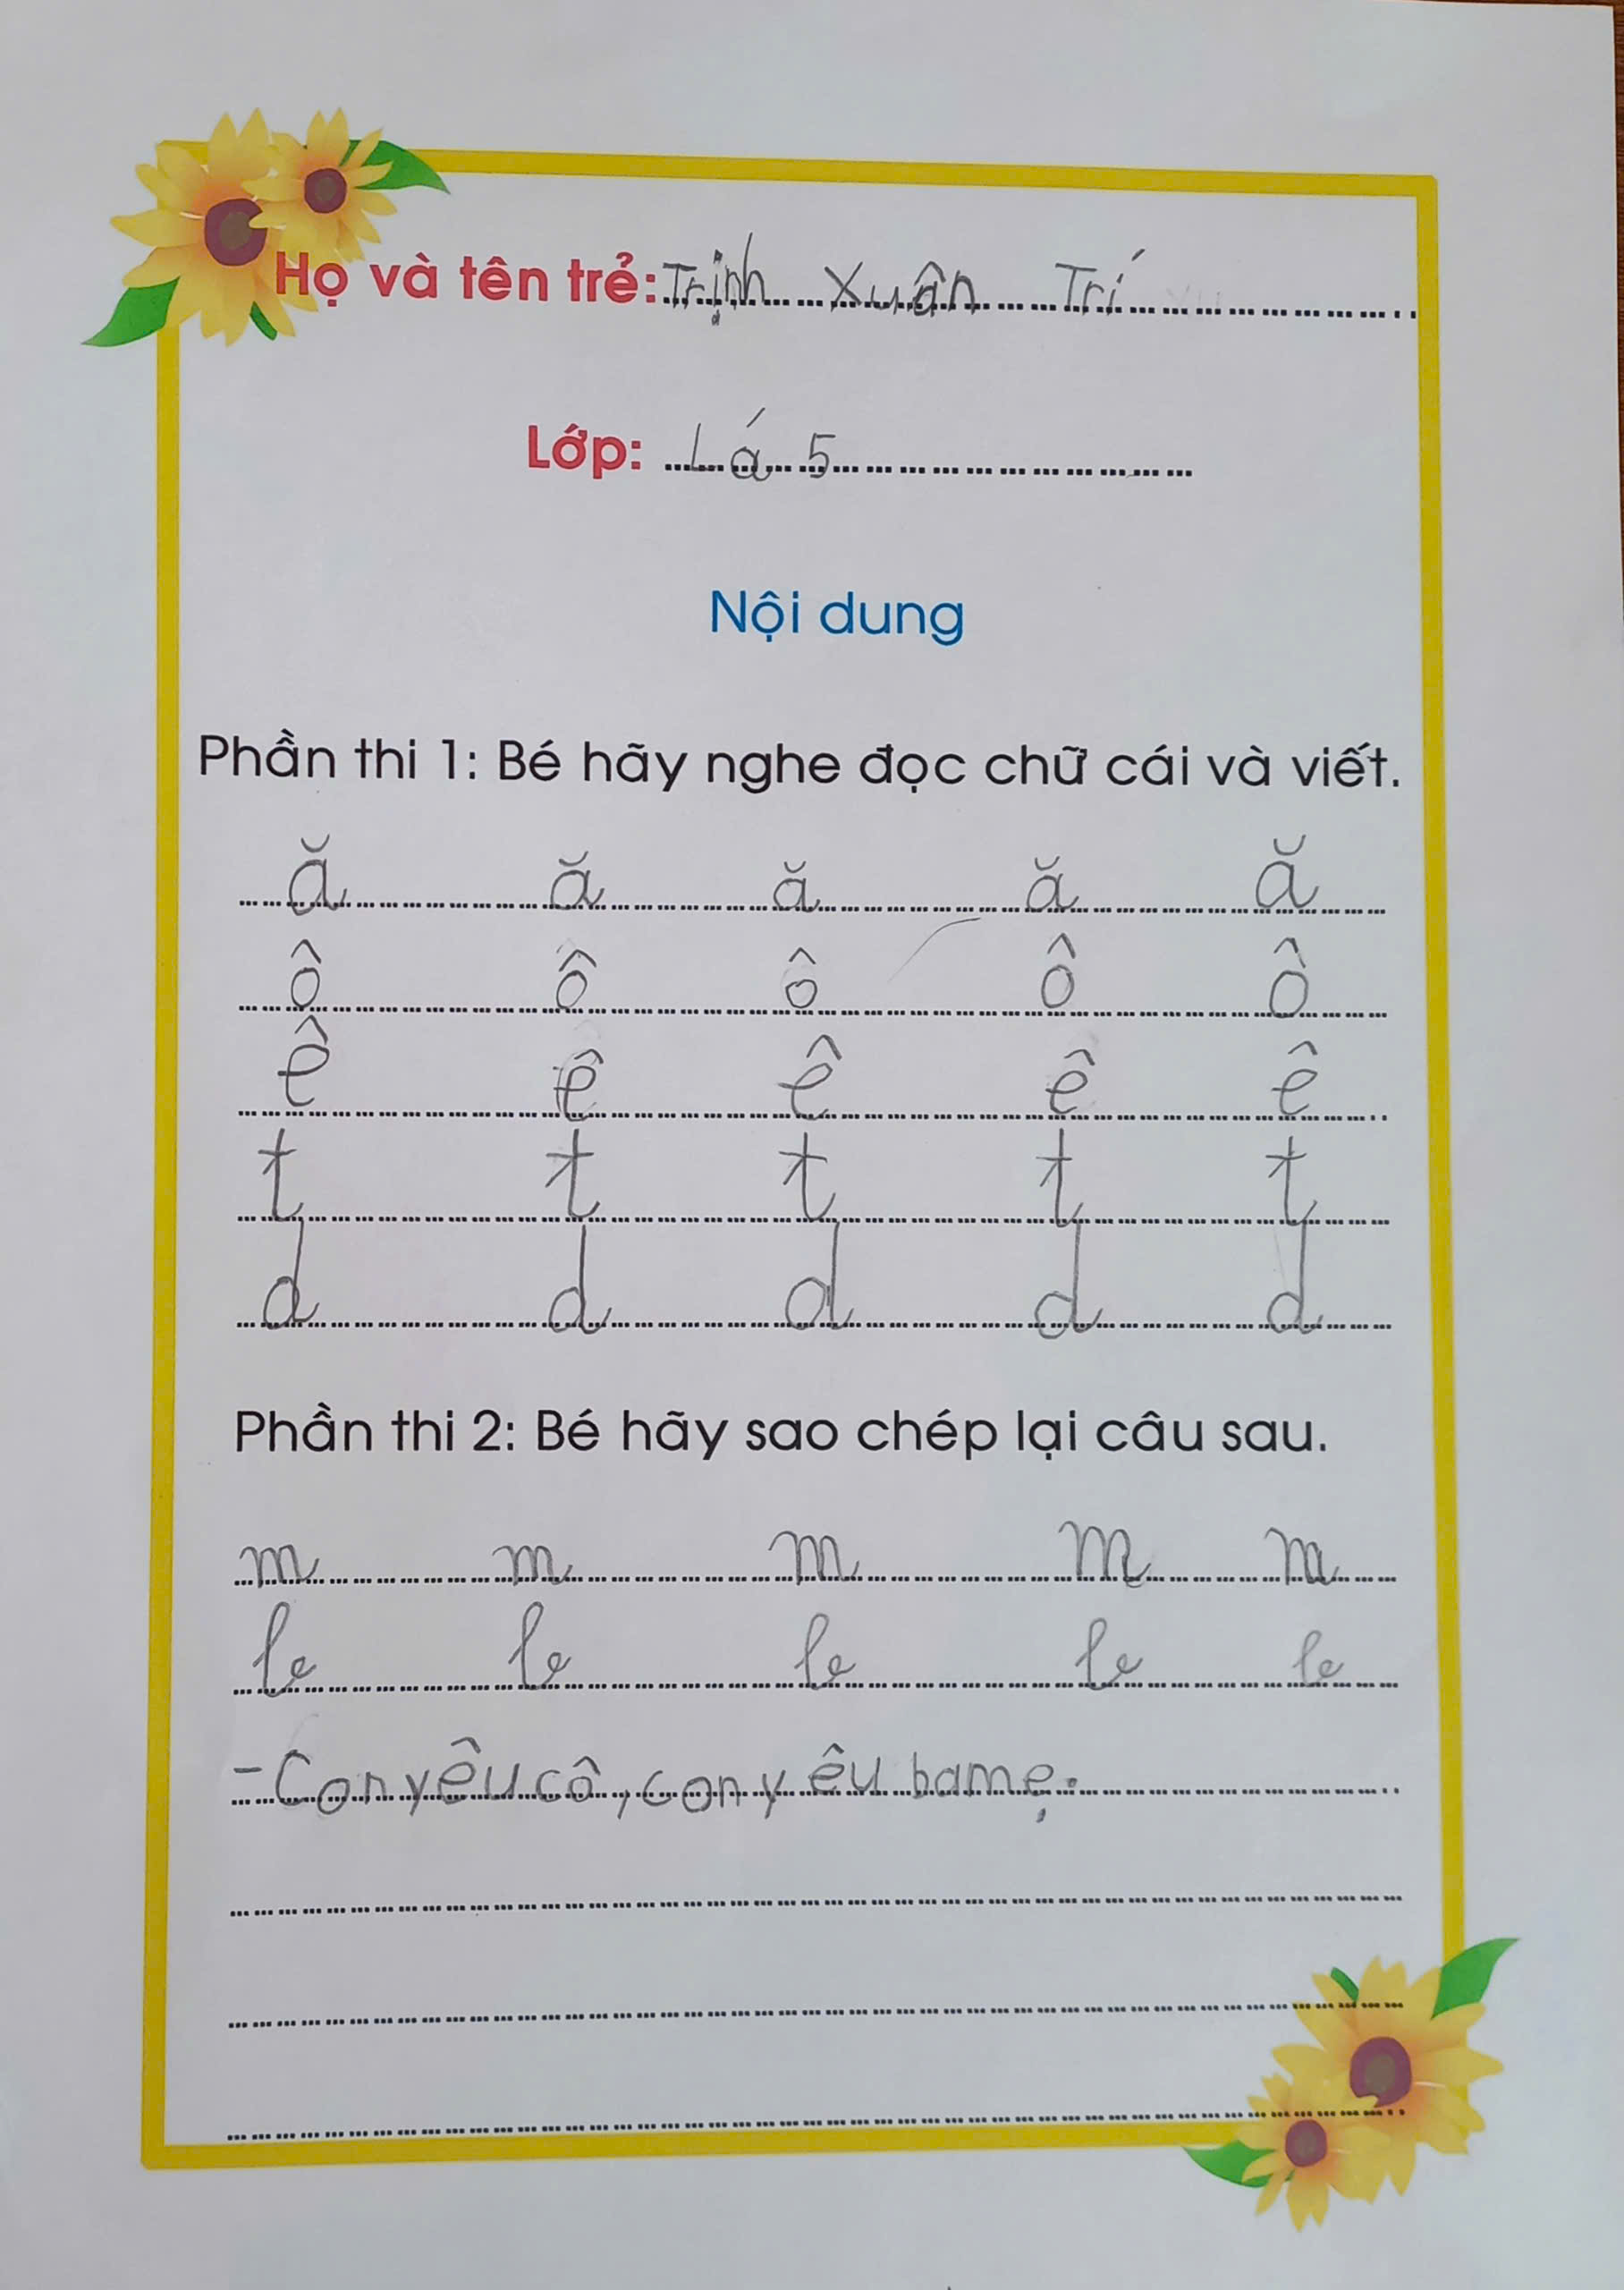 Họ và tên trẻ: Trịnh Xuân Trí
Lớp: Lá 5
Nội dung
Phần thi 1: Bé hãy nghe đọc chữ cái và viết.
ă ă ă ă ă
ô ô ô ô ô
ê ê ê ê ê
t t t t t
d d d d d
Phần thi 2: Bé hãy sao chép lại câu sau.
m m m m m
le le le le le
- Con yêu cô, con yêu ba mẹ.